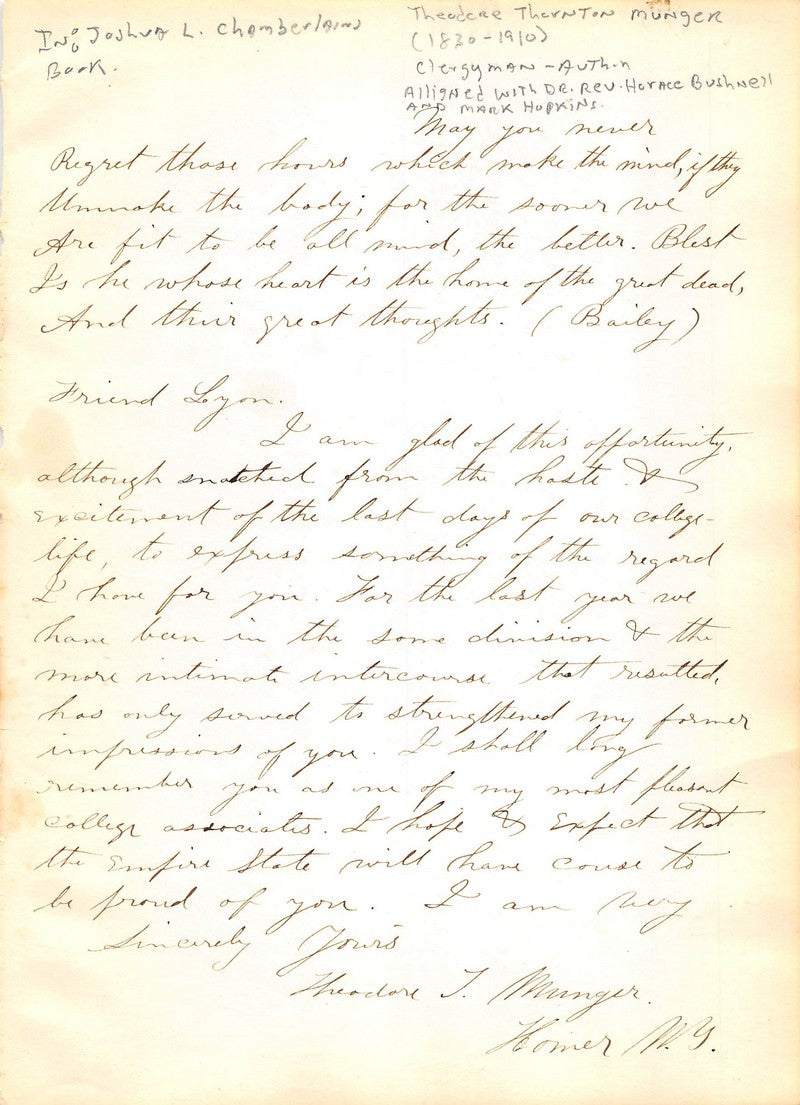 IN: Joshua L. Chamberlains
Book.
Theodore Thornton Munger
(1830-1910)
Clergyman - Author
Alligned with DR. REV. Horace Bushnell
AND MARK HOPKINS.
May you never
Regret those hours which make the mind, if they
Unmake the body; for the sooner we
Are fit to be all mind, the better. Blest
Is he whose heart is the home of the great dead,
And their great thoughts. (Bailey)
Friend Lyon.
I am glad of this opportunity,
although snatched from the haste &
excitement of the last days of our college-
life, to express something of the regard
I have for you. For the last year we
have been in the same division & the
more intimate intercourse that resulted,
has only served to strengthened my former
impressions of you. I shall long
remember you as one of my most pleasant
college associates. I hope & expect that
the Empire State will have cause to
be proud of you. I am very
Sincerely Yours
Theodore T. Munger.
Homer N.Y.